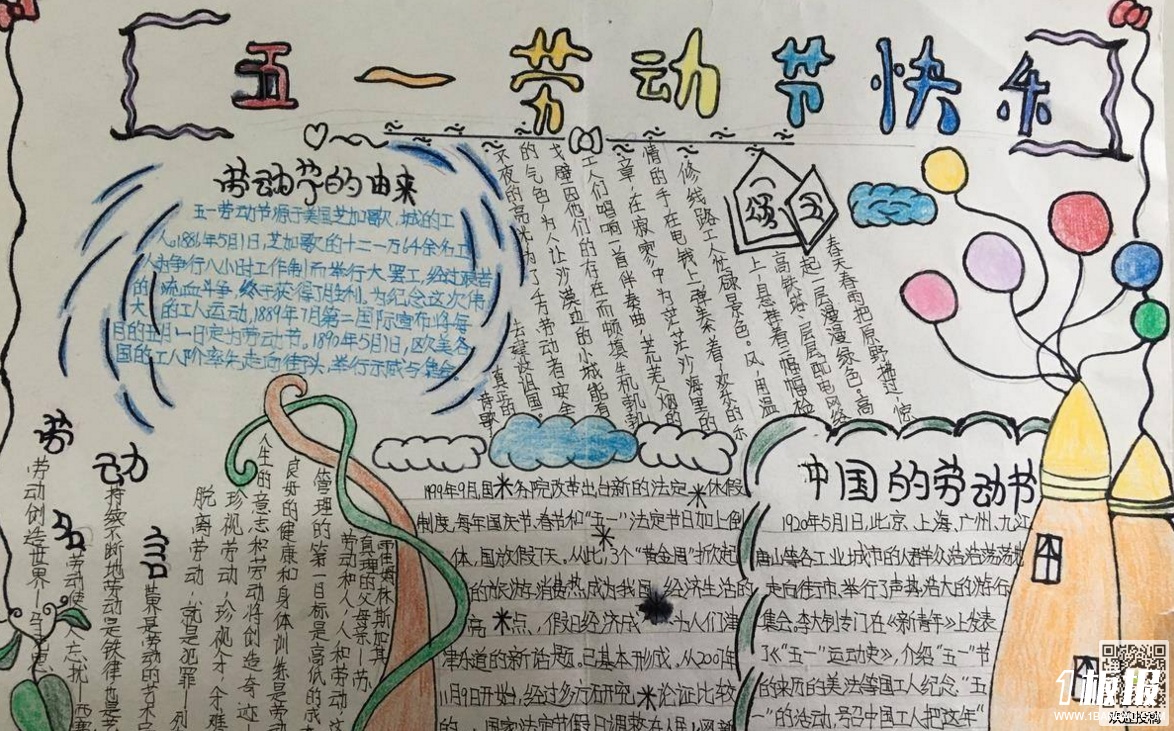 五一劳动节快乐
劳动节的由来
五一劳动节源于美国芝加歌.城的工
人.1886年5月1日,芝加歌的十二一万64余名工
人为争行八小时工作制而举行大罢工,经过艰苦
的流血斗争,终于获得了胜利。为纪念这次伟
大的工人运动,1889年7月第二国际宣布将每
月的五月一日定为劳动节。1890年5月1日,欧美各
国的工人阶率先走向街头,举行示威与集会。
颂五
春天春雨把原野拖过,惊
起一层漫漫绿色。高
高铁塔,层层配电网络
上,自悬挂着一幅幅检
修线路工人忙碌景色。风,用温
情的手在电钱上弹奏着,欢乐的乐
章,在寂寥中为茫茫沙海里的
工人们唱响一首伴奏曲,荒芜人烟的
戈壁因他们的存在而顿填生机勃勃
的气色,为人让沙漠边的小城能有
不夜的亮光,为了千万劳动者安全
去建设祖国
劳动名言
劳动创造世界—马克思
劳动使人忘忧—西塞
持续不断地劳动是铁律也是艺
脱离劳动,就是犯罪—列
珍视劳动,珍视才,才难
人生的意志和劳动将创造奇迹—
良好的健康和身体训练是劳动
管理的第一目标是高低的成
劳动和人,人和劳动,这
真理的父母亲—苏
1999年9月国务院改革出台新的法定休假
制度,每年国庆节.春节和“五一”法定节日加上倒
体,国放假7天.从此,3个“黄金周”掀起
的旅游消费热成为我国经济生活的
亮点,假日经济成为人们津
津乐道的新话题。已基本形成,从200
11月9日开始,经过多方研究论证比较
的,国家法定节假日调整在人民网新
中国的劳动节
1920年5月1日,北京.上海.广州.九江
唐山等各工业城市的人群众浩浩荡荡地
走向街市,举行了声势浩大的游行
集会.李大钊专门在《新青年》上发表
了《“五一”运动史》,介绍“五一”节
的来历的美法等国工人纪念“五
一”的活动,号召中国工人把这年“
1板报
WWW.1BANBAO.COM
欢迎投稿